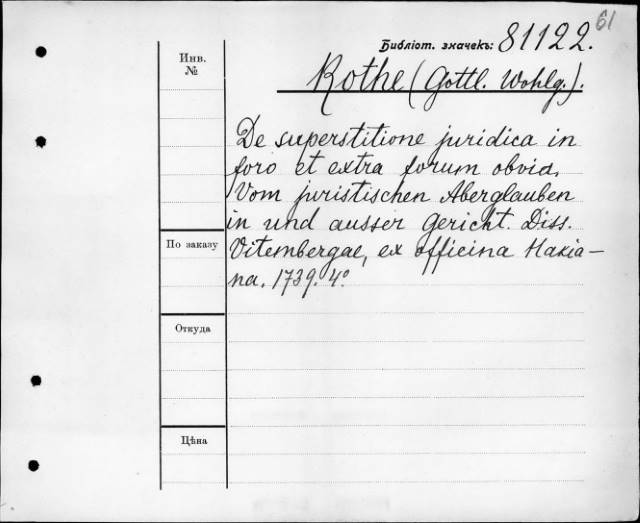 61
Библіот. значекъ: 81122.
Инв.
№
Rothe (Gottl. Wohlg.).
De superstitione juridica in
foro et extra forum obvia,
Vom juristischen Aberglauben
in und ausser Gericht. Diss.
По заказу
Vitembergae, ex officina Hakia-
na. 1739. 4°
Откуда
Цѣна